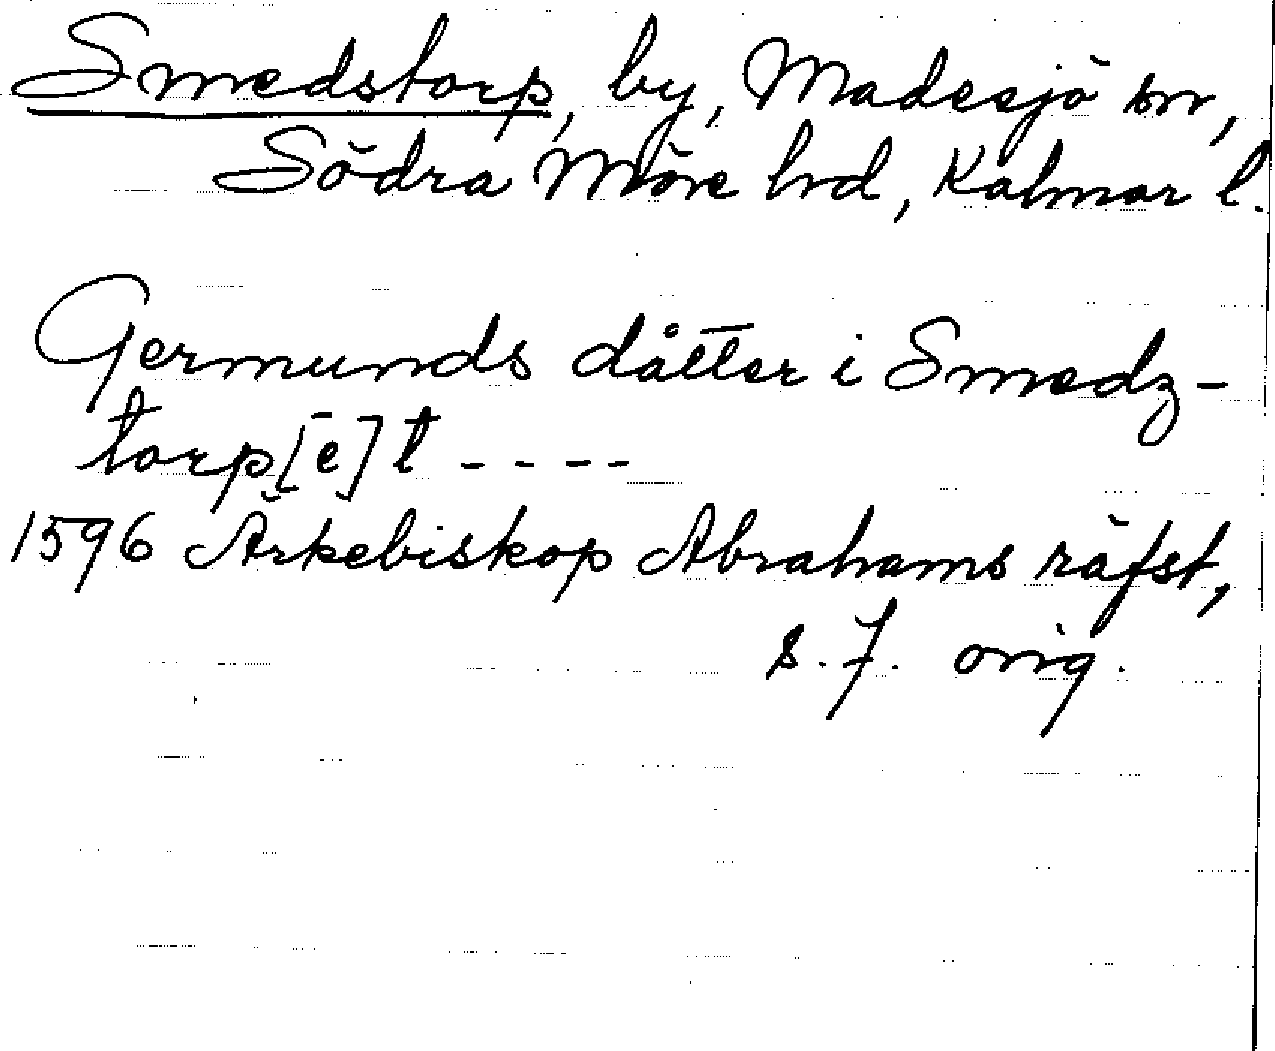 Smedstorp, by, Madesjö sn,
Södra Möre hrd, Kalmar l.
Germunds dåtter i Smedz-
torp[e]t - - - -
1596 Ärkebiskop Abrahams räfst,
s. 7. orig.